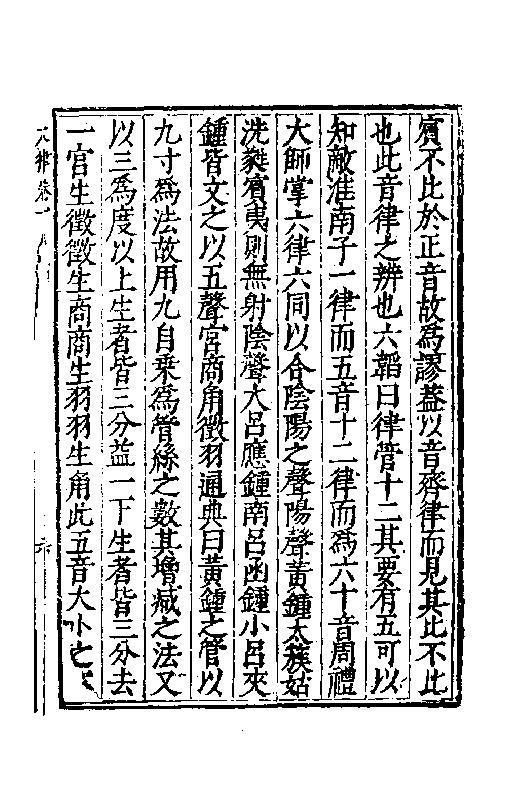 賔不比於正音故為謬葢以音齊律而見其比不比
也此音律之辨也六韜曰律管十二其要有五可以
知敵淮南子一律而五音十二律而為六十音周禮
大師掌六律六同以合陰陽之聲陽聲黃鍾太簇姑
洗蕤賔夷則無射陰聲大呂應鍾南呂函鍾小呂夾
鍾皆文之以五聲宮商角徵羽通典曰黃鍾之管以
九寸為法故用九自乗為管絲之數其增減之法又
以三為度以上生者皆三分益一下生者皆三分去
一宮生徵徵生商商生羽羽生角此五音大小之
律卷一
六